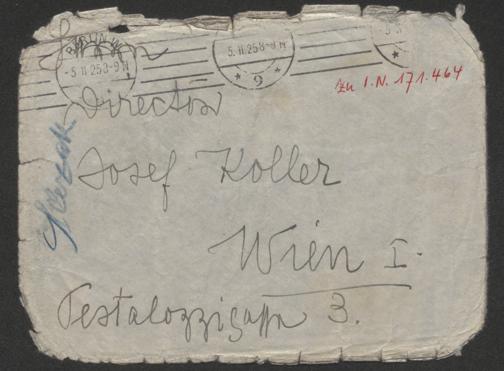 Herrn
BERLIN.W.
-5.II 25.8-9 N
5.II 25.8-9 N
* 9 *
zu I.N. 171.464
Director
Josef Koller
Slezak
Wien I.
Pestalozzigasse 3.